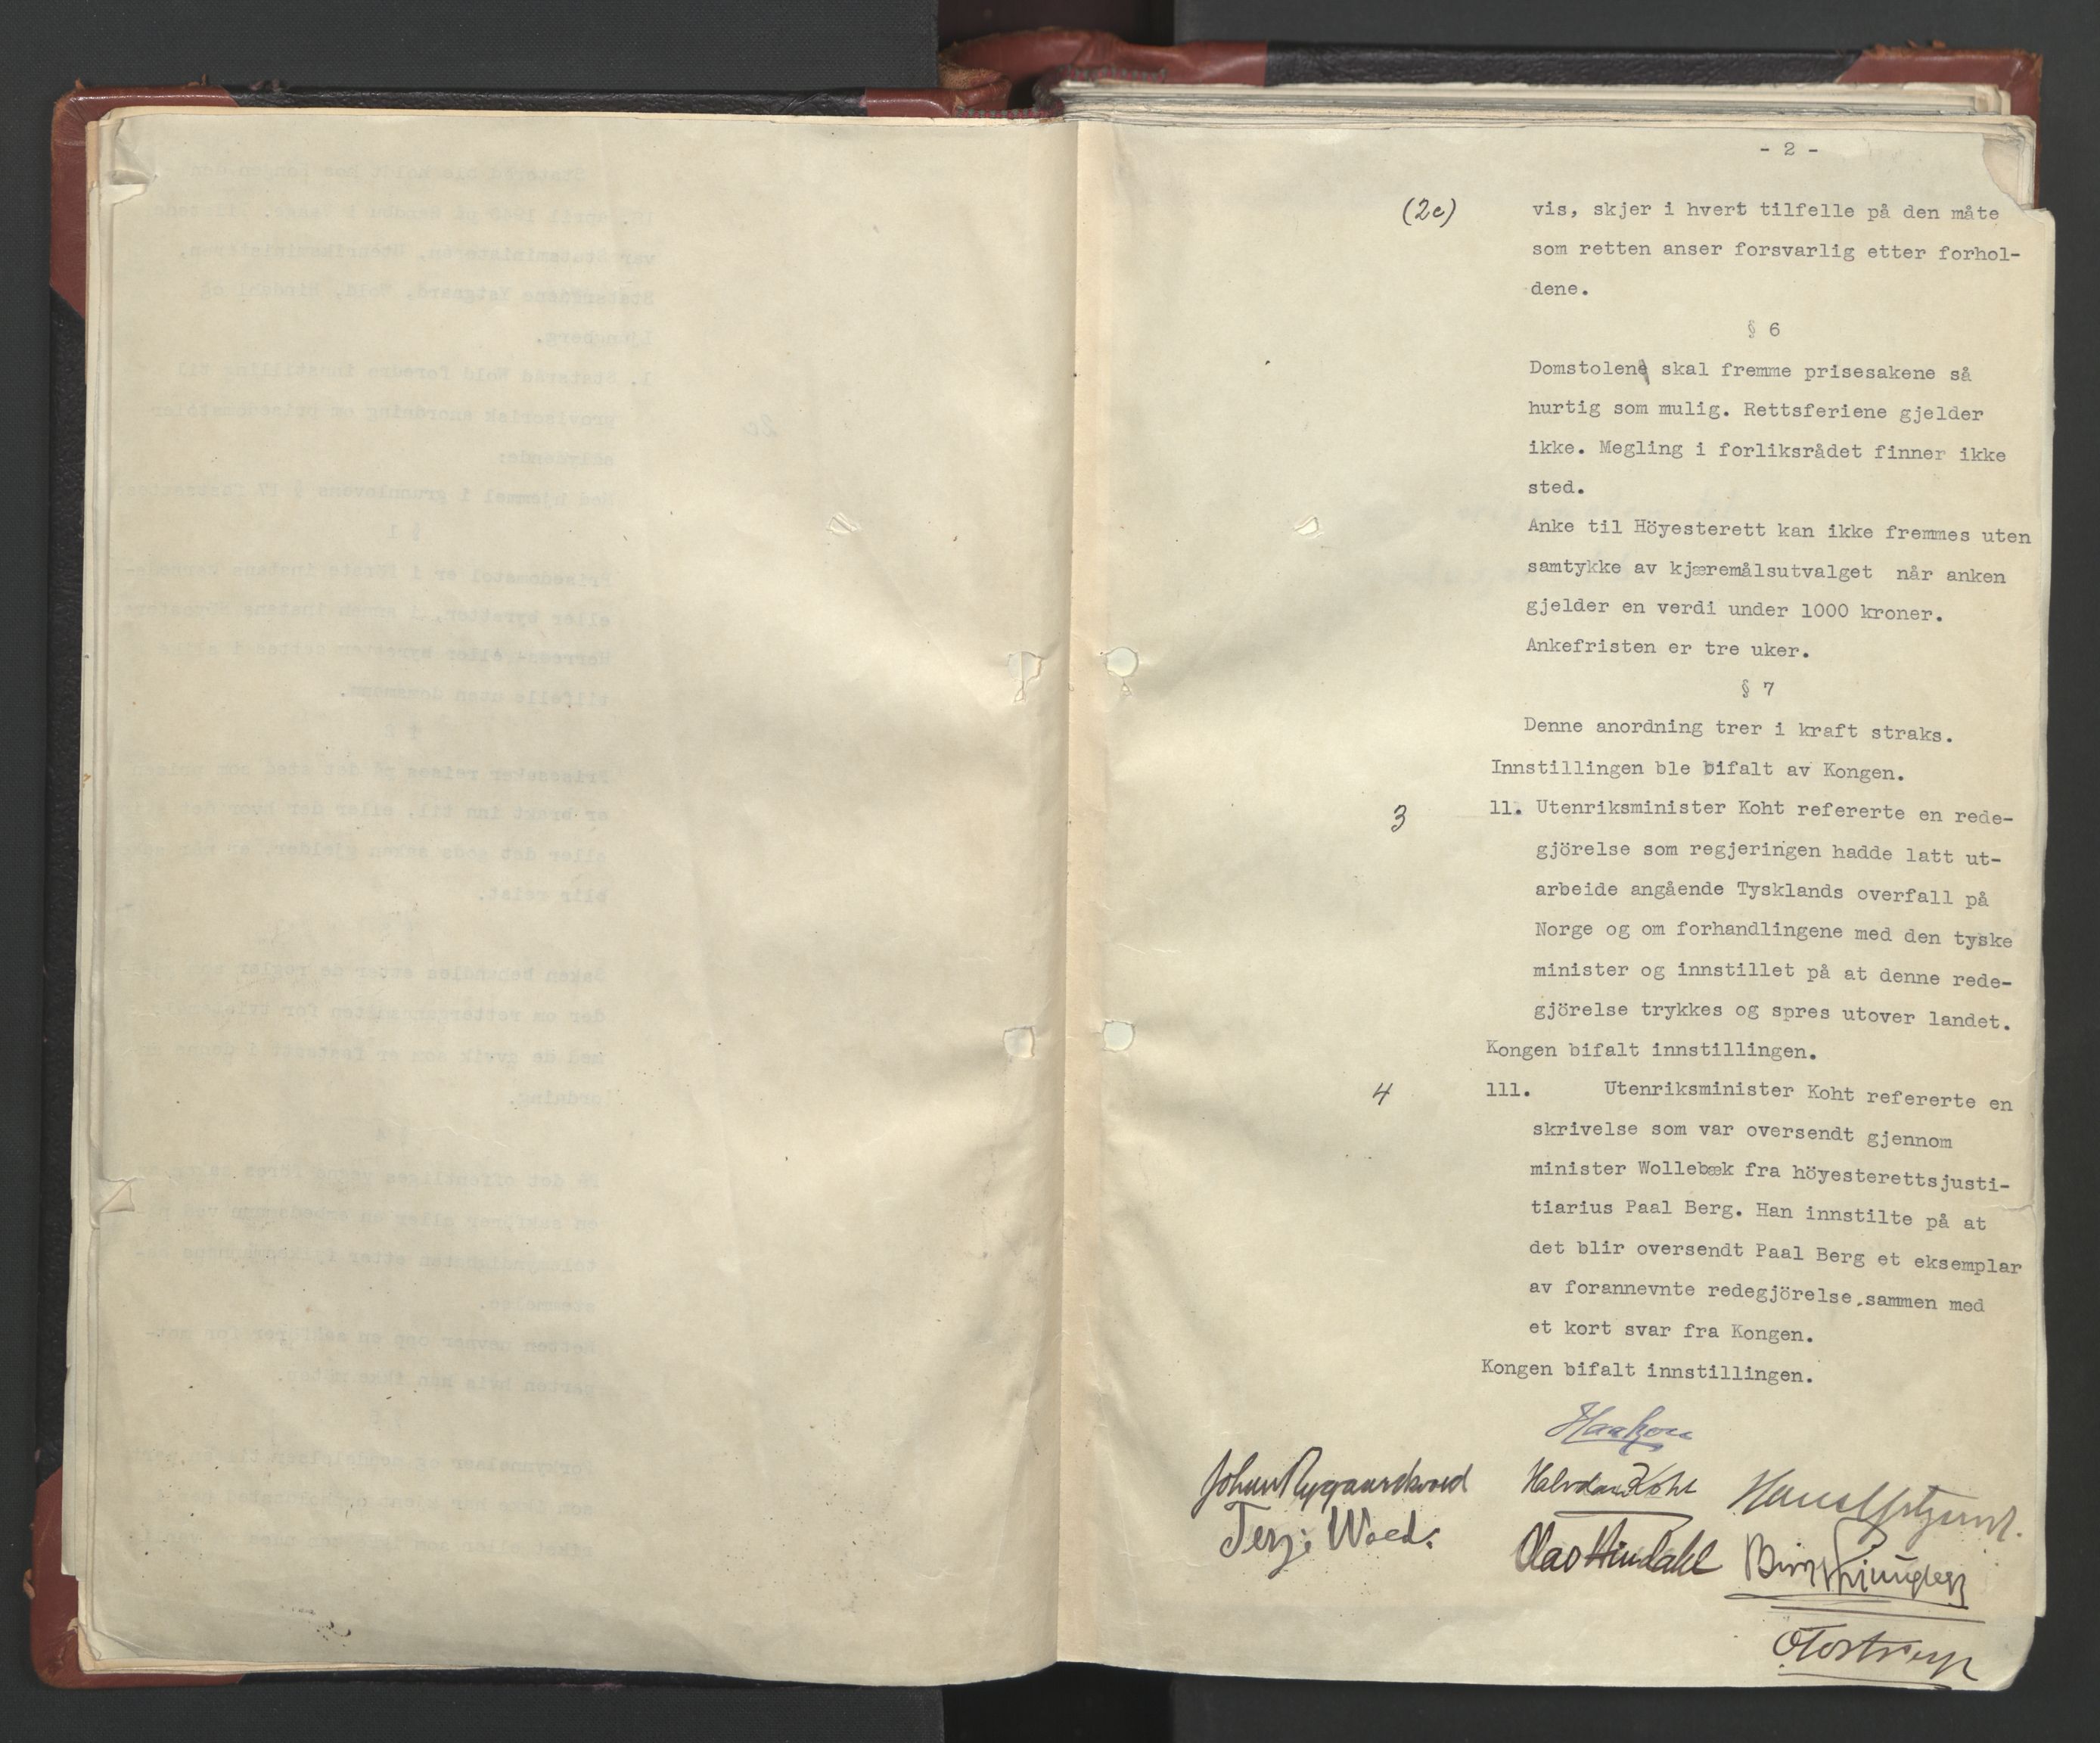 - 2 -
(2c) vis, skjer i hvert tilfelle på den måte
som retten anser forsvarlig etter forhol-
dene.
§ 6
Domstolene skal fremme prisesakene så
hurtig som mulig. Rettsferiene gjelder
ikke. Megling i forliksrådet finner ikke
sted.
Anke til Höyesterett kan ikke fremmes uten
samtykke av kjæremålsutvalget når anken
gjelder en verdi under 1000 kroner.
Ankefristen er tre uker.
§ 7
Denne anordning trer i kraft straks.
Innstillingen ble bifalt av Kongen.
3 11. Utenriksminister Koht refererte en rede-
gjörelse som regjeringen hadde latt ut-
arbeide angående Tysklands overfall på
Norge og om forhandlingene med den tyske
minister og innstillet på at denne rede-
gjörelse trykkes og spres utover landet.
Kongen bifalt innstillingen.
4 111. Utenriksminister Koht refererte en
skrivelse som var oversendt gjennom
minister Wollebæk fra höyesterettsjusti-
tiarius Paal Berg. Han innstilte på at
det blir oversendt Paal Berg et eksemplar
av forannevnte redegjörelse.sammen med
et kort svar fra Kongen.
Kongen bifalt innstillingen.
Haakon
Johan Nygaardsvold Halvdan Koht
Terje Wold. Olav Hindahl